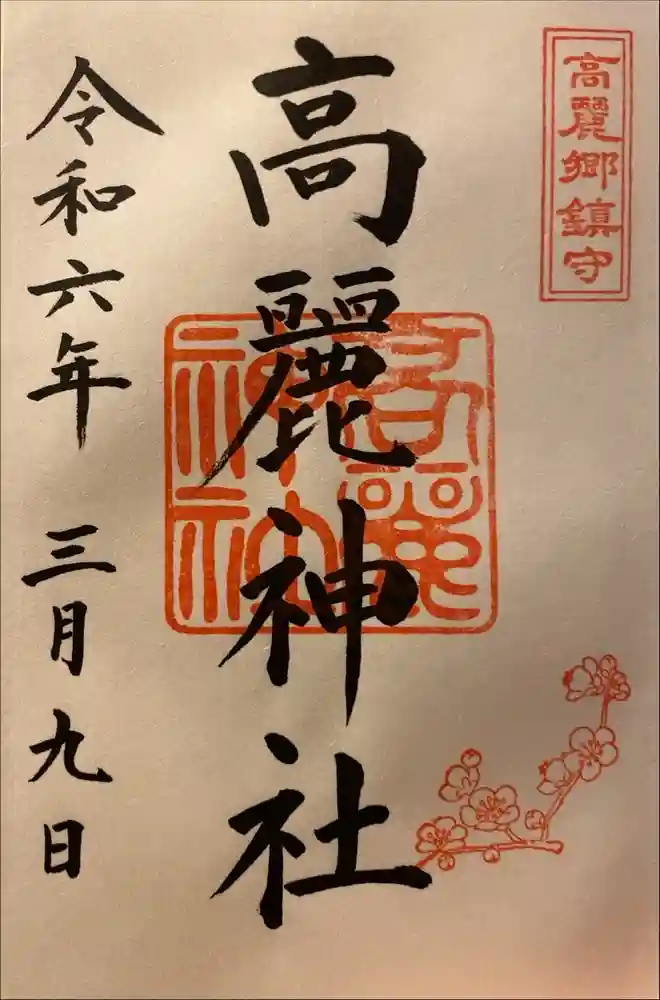 高麗郷鎮守
高麗神社
高麗
神社
令和六年 三月九日